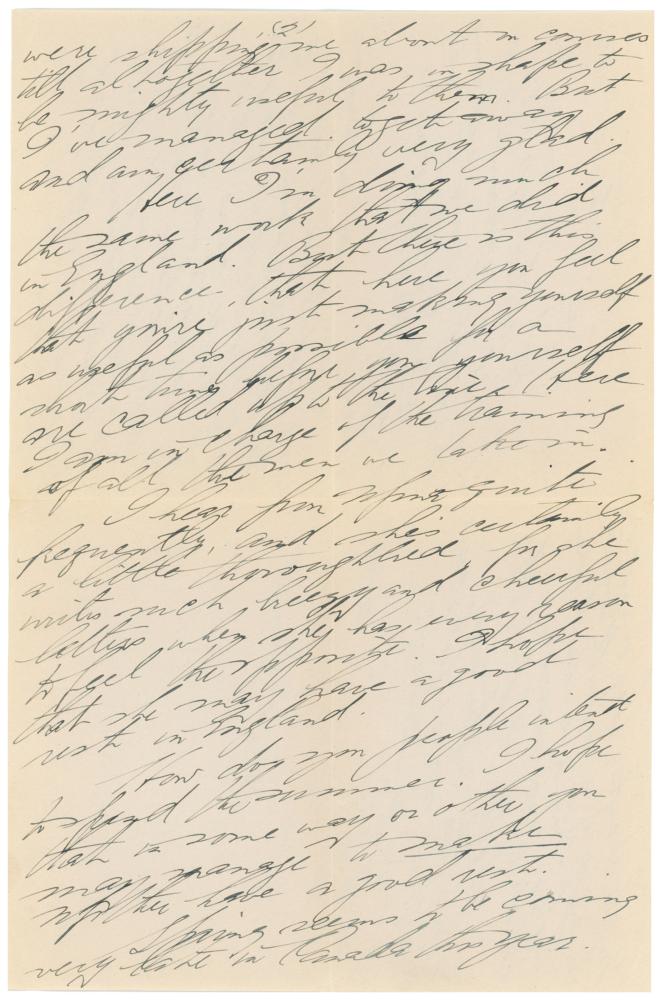 (3)
were shipping me about on courses
till altogether I was in shape to
be mighty useful to them. But
I've managed to get away
and am certainly very glad.
Here I'm doing much
the same work that we did
in England. But there is this
difference, that here you feel
that you're just making yourself
as useful as possible for a
short time before you yourself
are called up to the line. Here
I am in charge of the training
of all the men we take in.
I hear from quite
frequently, and she's certainly
a little thoroughbred, for she
writes such breezy and cheerful
letters when she has every reason
to feel the opposite. I hope
that she may have a good
rest in England.
How do you people intend
to spend the summer. I hope
that in some way or other you
may manage to make
have a good rest.
Spring seems to be coming
very late in Canada this year.